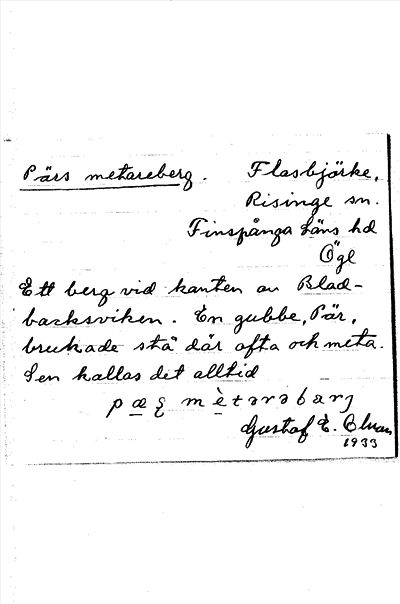 Pärs metareberg. Flasbjörke,
Risinge sn.
Finspånga läns hd
Ögl
Ett berg vid kanten av Blad-
backsviken. En gubbe, Pär,
brukade stå där ofta och meta.
Sen kallas det alltid
Gustaf E.
1933